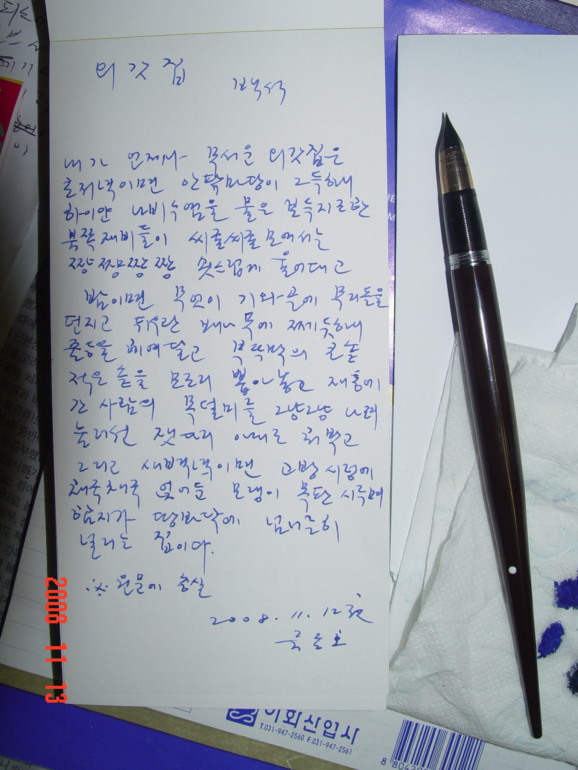 외갓집
백석
내가 언제나 무서운 외갓집은
초저녁이면 안팎마당이 그득하니
하이얀 나비수염을 물은 보득지근한
북쪽재비들이 씨굴씨굴 모여서는
쨩쨩쨩쨩 쇳스럽게 울어대고
밤이면 무엇이 기와골에 무리돌을
던지고 뒤우란 배나무에 쩨듯하니
줄등을 헤여달고 부뚜막의 큰솥
적은솥을 모조리 뽑아놓고 재통에
간 사람의 목덜미를 그냥그냥 나려
눌러선 잿다리 아래로 처박고
그리고 새벽녘이면 고방 시렁에
채국채국 얹어둔 모랭이 목판 시루며
함지가 땅바닥에 넘너른히
널리는 집이다.
※ 원문에 충실
2008. 11. 12
2008 11 13
이화신입사
T.031-947-2560 F.031-947-2561